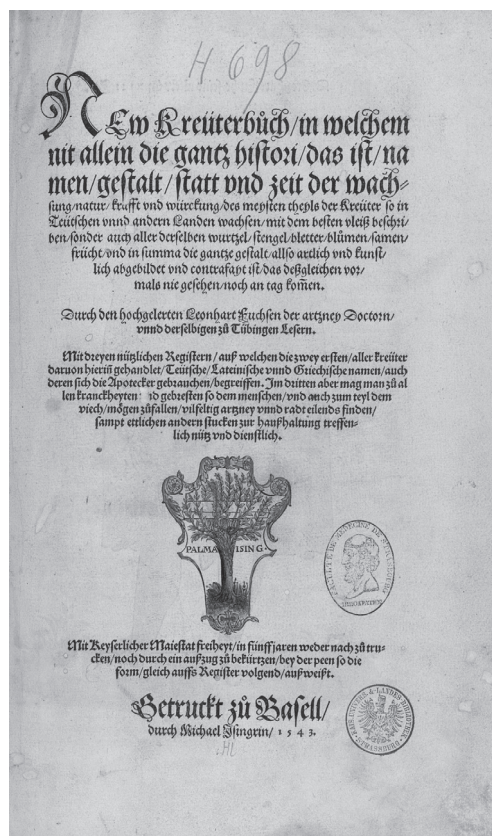 H 698
NEw Kreüterbůch/in welchem
nit allein die gantz histori/das ist/na
men/gestalt/statt vnd zeit der wach⸗
sung/natur/krafft vnd würckung/des meysten theyls der Kreüter so in
Teütschen vnnd andern Landen wachsen/mit dem besten vleiß beschri⸗
ben/sonder auch aller derselben wurtzel/stengel/bletter/blůmen/samen/
frücht/vnd in summa die gantze gestalt/allso artlich vnd kunst⸗
lich abgebildet vnd contrafayt ist/das deßgleichen vor⸗
mals nie gesehen/noch an tag kom̃en.
Durch den hochgelerten Leonhart Fuchsen der artzney Doctorn/
vnnd derselbigen zů Tübingen Lesern.
Mit dreyen nützlichen Registern/auß welchen die zwey ersten/aller kreüter
daruon hieriñ gehandlet/Teütsche/Lateinische vnnd Griechische namen/auch
deren sich die Apotecker gebrauchen/begreiffen. Im dritten aber mag man zů al
len kranckheyten d gebresten so dem menschen/vnd auch zum teyl dem
viech/mögen zůfallen/vilfeltig artzney vnnd radt eilends finden/
sampt ettlichen andern stucken zur haußhaltung treffen⸗
lich nütz vnd dienstlich.
PALMA ISING
FACULTÉ DE MÉDECINE DE STRASBOURG
HIPPOKRATES
Mit Keyserlicher Maiestat freiheyt/in fünff jaren weder nach zů tru⸗
cken/noch durch ein außzug zů bekürtzen/bey der peen so die
form/gleich auffs Register volgend/außweißt.
Getruckt zů Basell/
durch Michael Isingrin/1543.
KAIS. UNIVERS. & LANDES BIBLIOTHEK
STRASSBURG